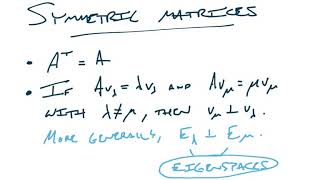 SYMMETRIC MATRICES
• Aᵀ = A
• IF Av_λ = λv_λ AND Av_μ = μv_μ
WITH λ ≠ μ, THEN v_μ ⊥ v_λ.
MORE GENERALLY, E_λ ⊥ E_μ.
EIGENSPACES